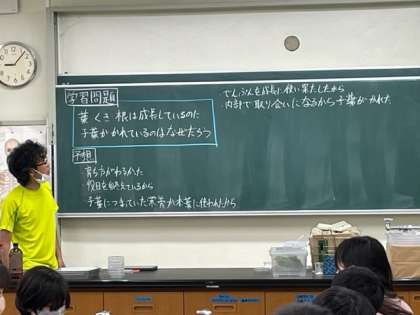 学習問題
葉 くき 根は成長しているのに
子葉がかれているのはなぜだろう
予想
育ち方がわるかった
役目を終えているから
子葉につまっていた養分が本葉に使われたから
・でんぷんを成長に使い果たしたから
・内部で取り合いになるから子葉がかれた